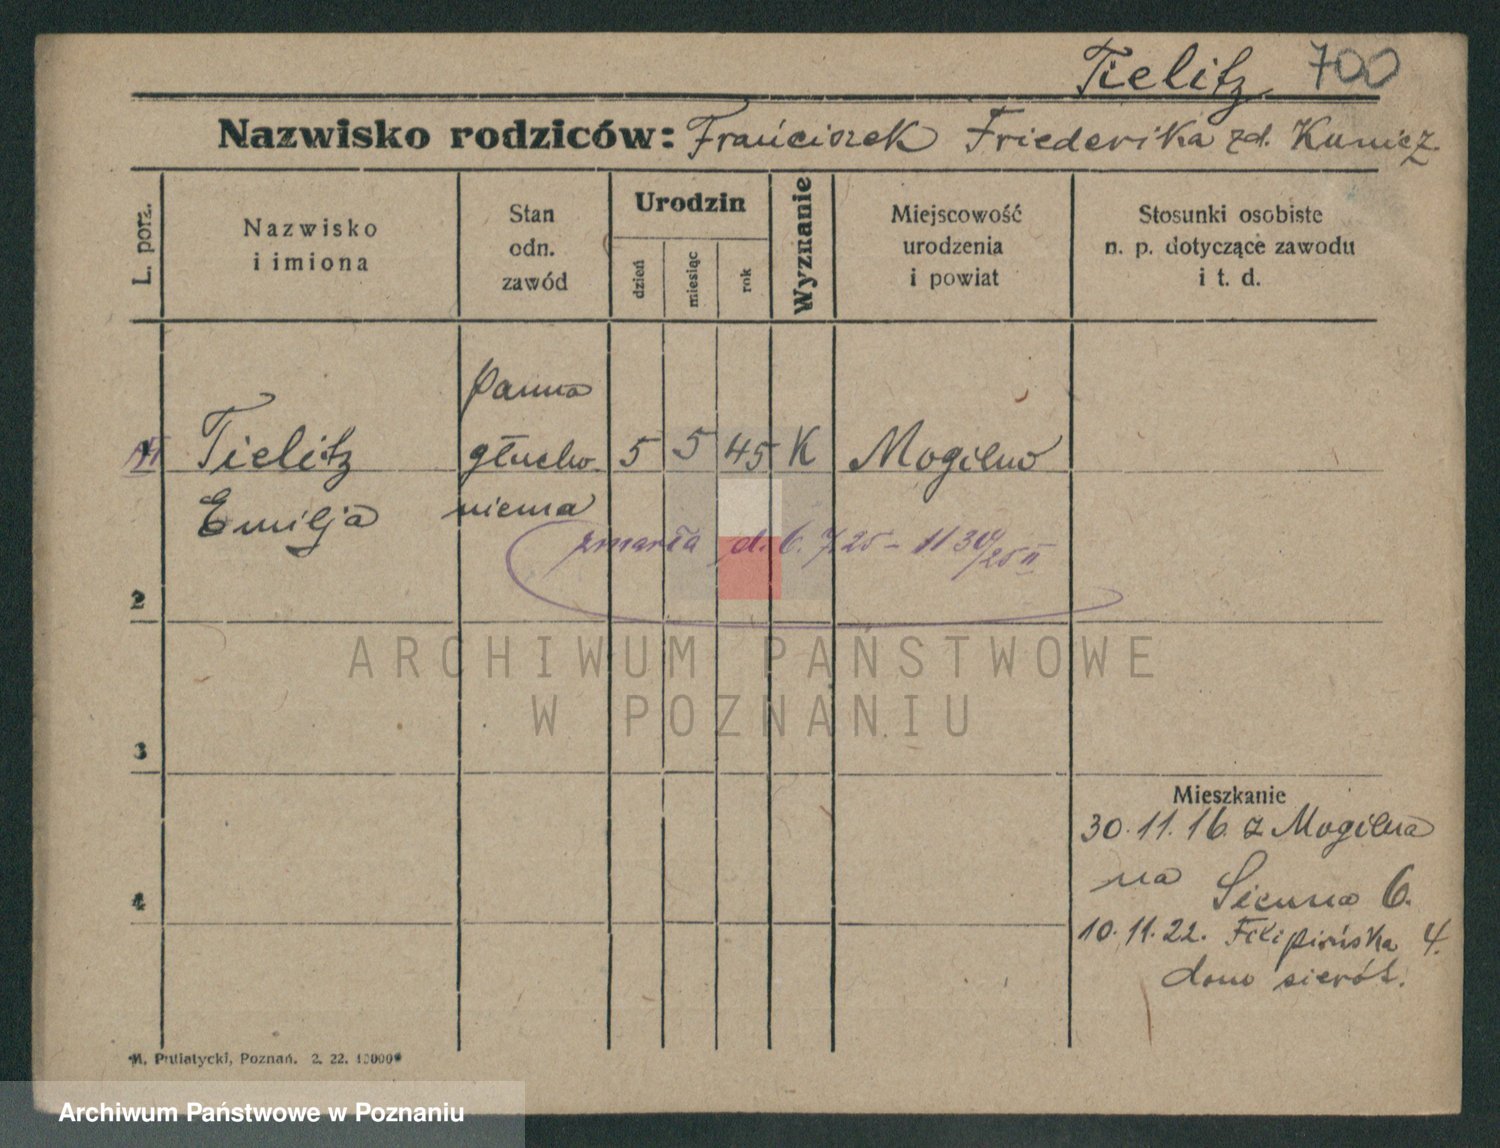 Tielitz 700
Nazwisko rodziców: Franciszek Friederika zd. Kunicz.
L. porz.
Nazwisko
i imiona
Stan
odn.
zawód
Urodzin
dzień
miesiąc
rok
Wyznanie
Miejscowość
urodzenia
i powiat
Stosunki osobiste
n. p. dotyczące zawodu
i t. d.
Panna
Tielitz głucho 5 5 45 K Mogilno
Emilja niema
zmarła d. 6. 7 25 - 11 30/25 II
2
3
Mieszkanie
30. 11. 16. z Mogilna
na Sienna 6.
4
10. 11. 22. Filipińska 4.
dom sierót.
M. Putiatycki, Poznań. 2. 22. 10000
ARCHIWUM PAŃSTWOWE
W POZNANIU
Archiwum Państwowe w Poznaniu